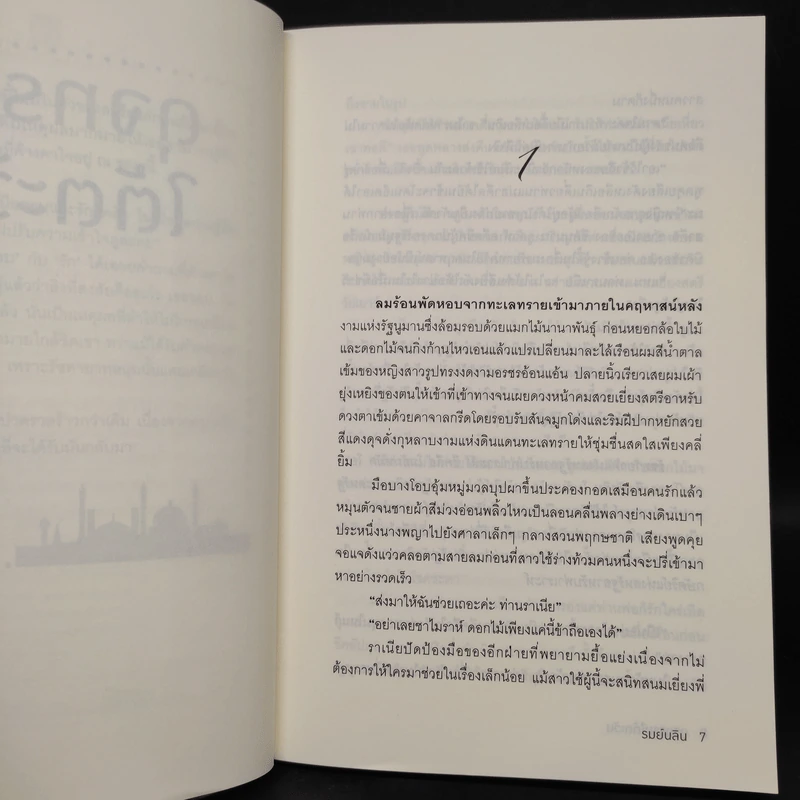 1
ลมร้อนพัดหอบจากทะเลทรายเข้ามาภายในคฤหาสน์หลัง
งามแห่งรัฐนูมานซึ่งล้อมรอบด้วยแมกไม้นานาพันธุ์ ก่อนหยอกล้อใบไม้
และดอกไม้จนกิ่งก้านไหวเอนแล้วแปรเปลี่ยนมาละไล้เรือนผมสีน้ำตาล
เข้มของหญิงสาวรูปทรงงดงามอรชรอ้อนแอ้น ปลายนิ้วเรียวเสยผมเผ้า
ยุ่งเหยิงของตนให้เข้าที่เข้าทางจนเผยดวงหน้าคมสวยเยี่ยงสตรีอาหรับ
ดวงตาเข้มด้วยคาจาลกรีดโดยรอบรับสันจมูกโด่งและริมฝีปากหยักสวย
สีแดงดุจดั่งกุหลาบงามแห่งดินแดนทะเลทรายให้ชุ่มชื่นสดใสเพียงคลี่
ยิ้ม
มือบางโอบอุ้มหมู่มวลบุปผาขึ้นประคองกอดเสมือนคนรักแล้ว
หมุนตัวจนชายผ้าสีม่วงอ่อนพลิ้วไหวเป็นลอนคลื่นพลางย่างเดินเบาๆ
ประหนึ่งนางพญาไปยังศาลาเล็กๆ กลางสวนพฤกษชาติ เสียงพูดคุย
จอแจดังแว่วคลอตามสายลมก่อนที่สาวใช้ร่างท้วมคนหนึ่งจะปรี่เข้ามา
หาอย่างรวดเร็ว
“ส่งมาให้ฉันช่วยเถอะค่ะ ท่านราเนีย”
“อย่าเลยชาไมราห์ ดอกไม้เพียงแค่นี้ข้าถือเองได้”
ราเนียปัดป้องมือของอีกฝ่ายที่พยายามยื้อแย่งเนื่องจากไม่
ต้องการให้ใครมาช่วยในเรื่องเล็กน้อย แม้สาวใช้ผู้นี้จะสนิทสนมเยี่ยงพี่
รมย์นลิน 7